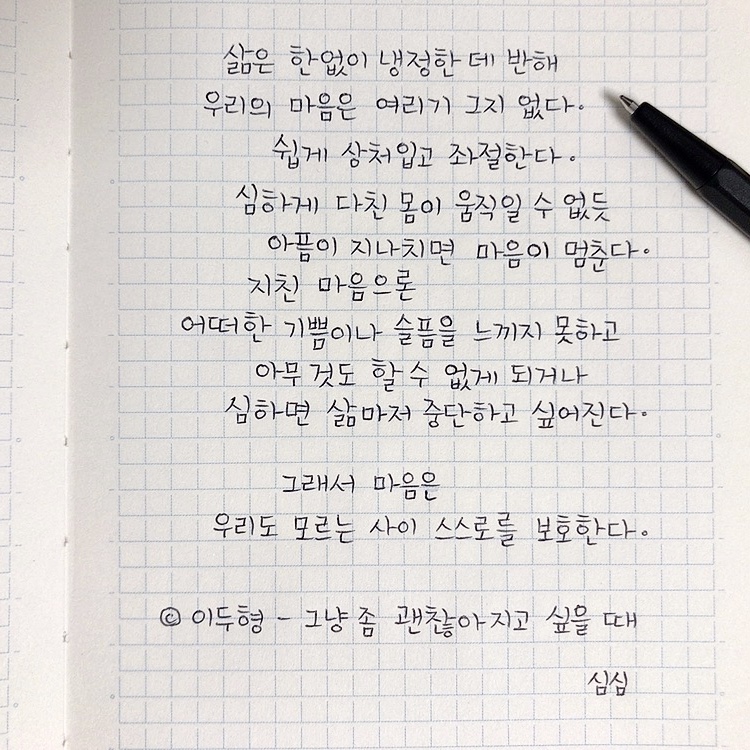 삶은 한없이 냉정한 데 반해
우리의 마음은 여리기 그지 없다.
쉽게 상처입고 좌절한다.
심하게 다친 몸이 움직일 수 없듯
아픔이 지나치면 마음이 멈춘다.
지친 마음으론
어떠한 기쁨이나 슬픔을 느끼지 못하고
아무것도 할 수 없게 되거나
심하면 삶마저 중단하고 싶어진다.
그래서 마음은
우리도 모르는 사이 스스로를 보호한다.
© 이두형 - 그냥 좀 괜찮아지고 싶을 때
심심